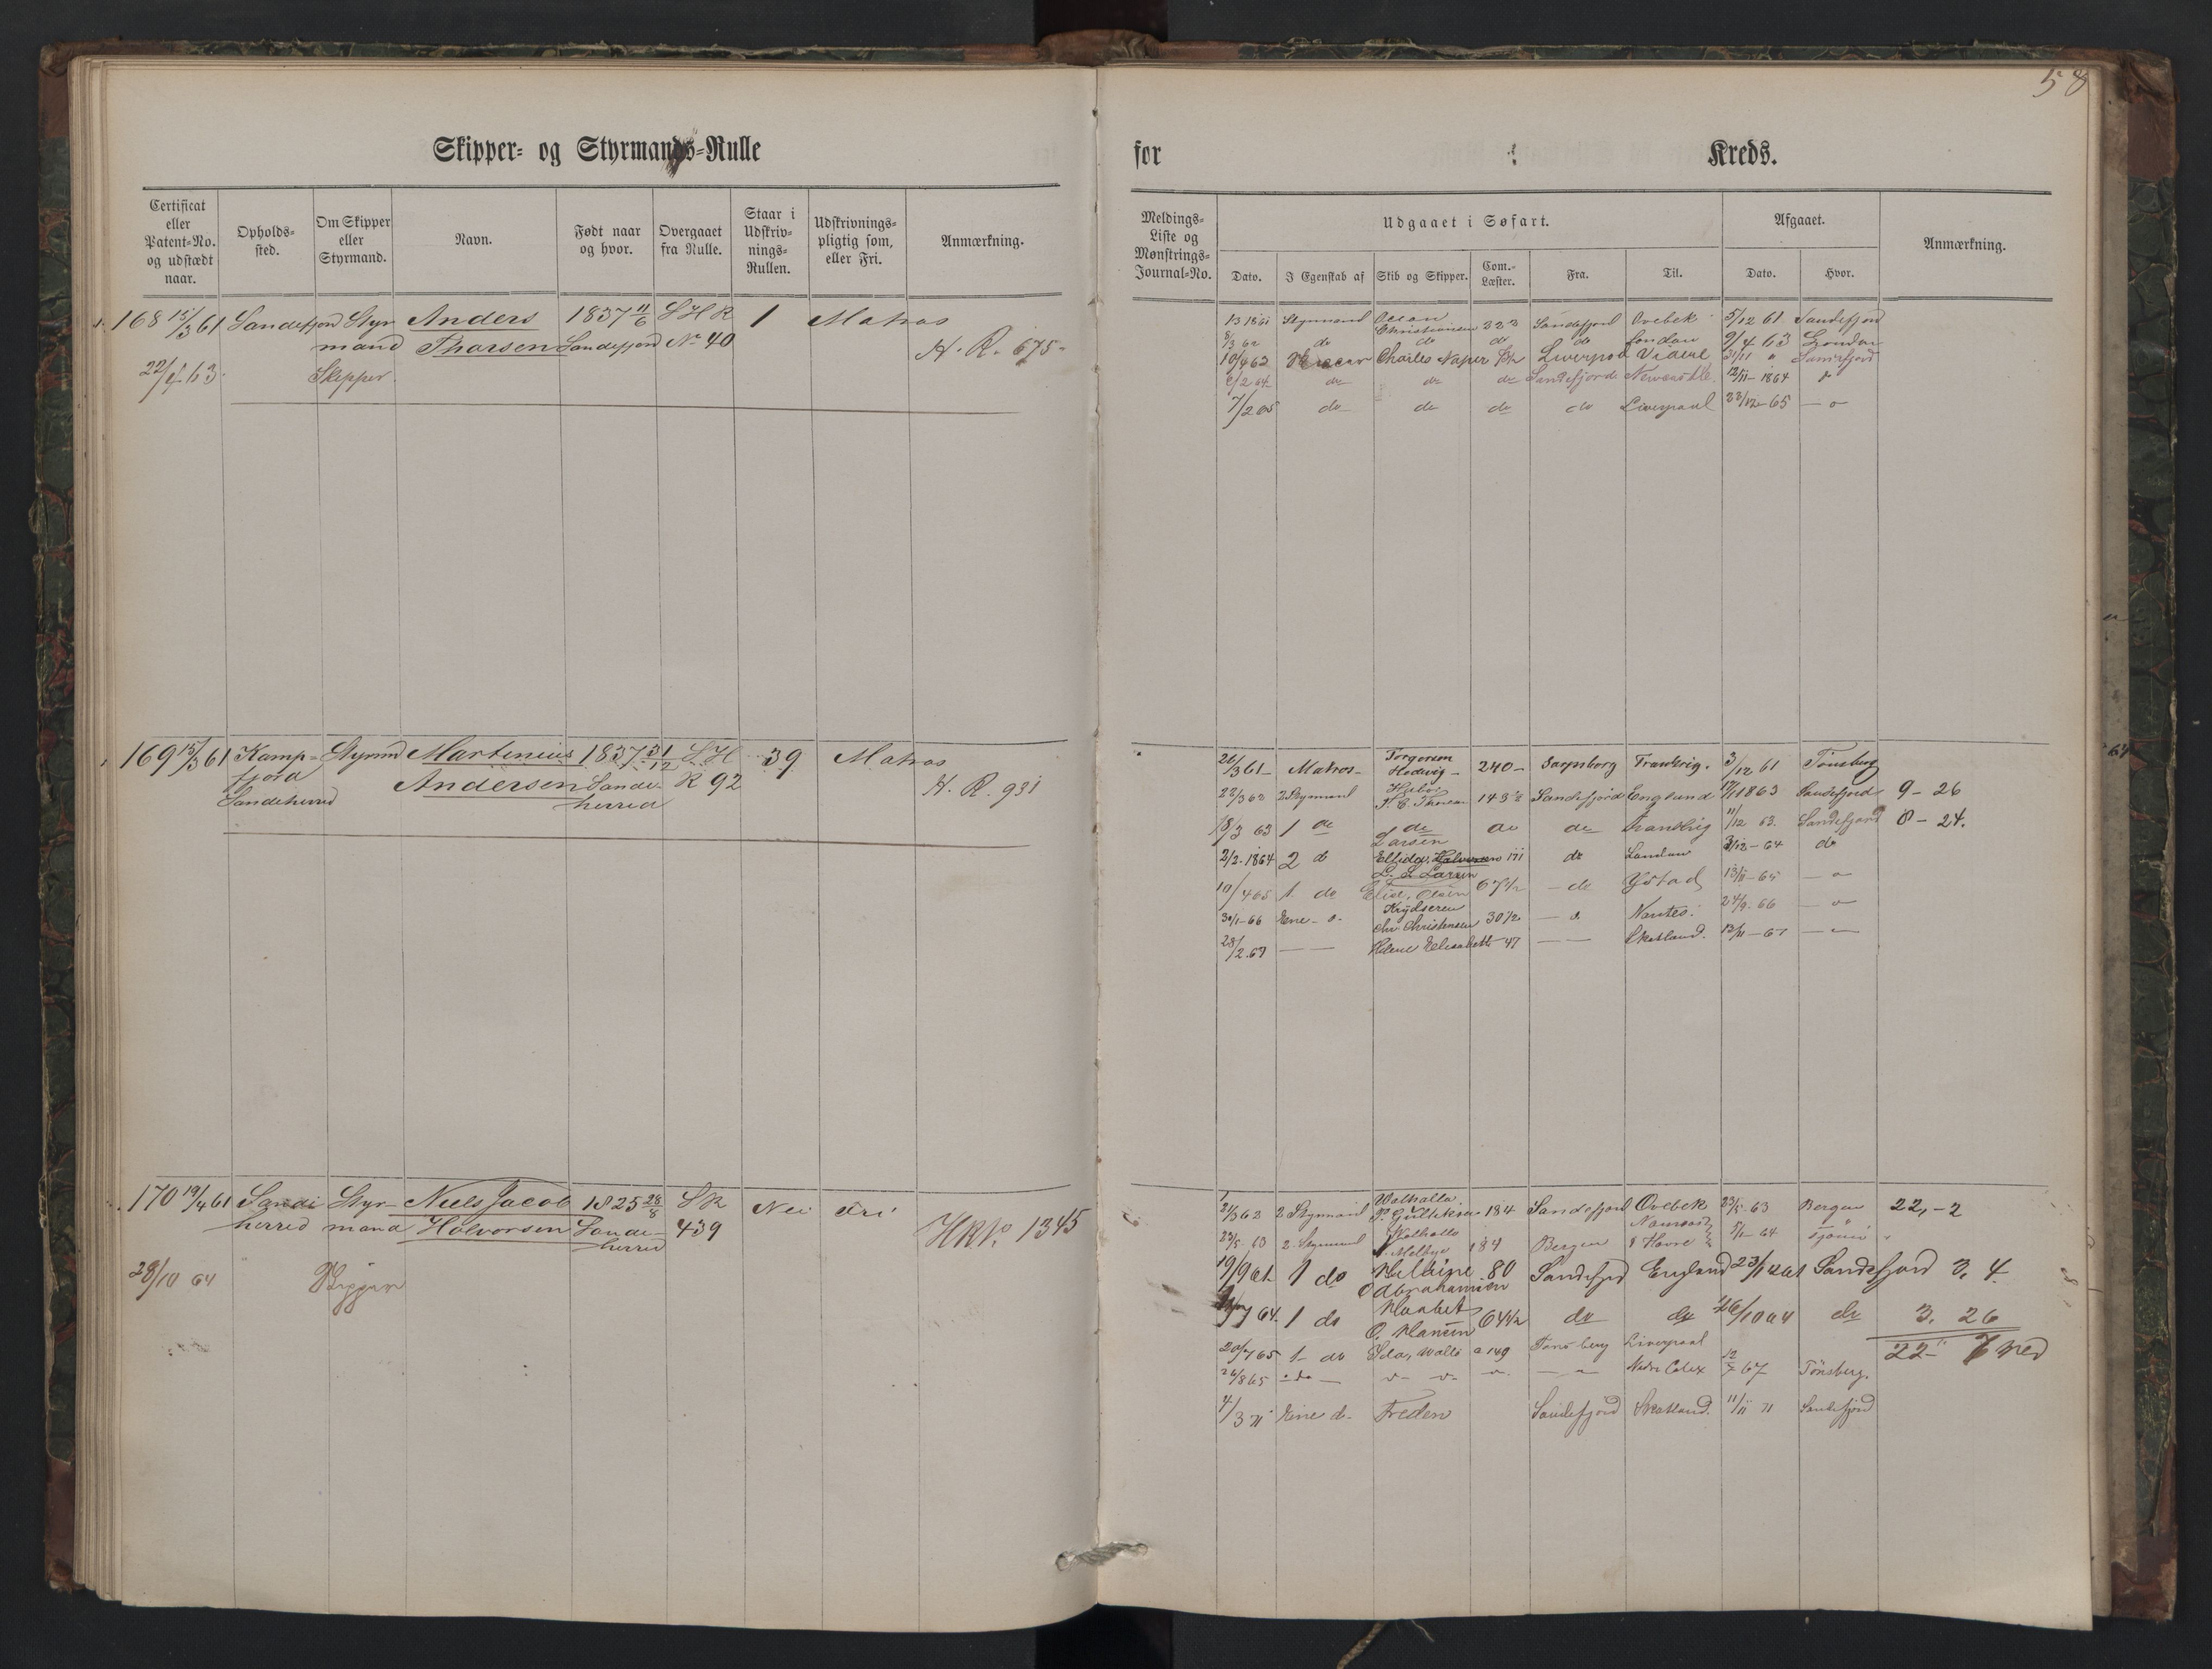 58
Skipper- og Styrmands-Rulle
for Kreds.
Certificat eller Patent-No. og udstædt naar.
Opholds-sted.
Om Skipper eller Styrmand.
Navn.
Født naar og hvor.
Overgaaet fra Rulle.
Staar i Udskriv-nings-Rullen.
Udskrivnings-pligtig som, eller Fri.
Anmærkning.
Meldings-Liste og Mønstrings-Journal-No.
Udgaaet i Søfart.
Afgaaet.
Anmærkning.
Dato. I Egenskab af Skib og Skipper. Com.-Læster. Fra. Til. Dato. Hvor.
168 15/3 61 Sandefjord Styr Anders 1837 11/6 S H R 1 Matros
mand Thorsen Sandefjord No 40
H. R. 675-
22/4 63. Skipper.
1861 Styrmand Ocean
Christiansen 323 Sandefjord Ovebek 5/12 61 Sandefjord
8/3 62 do do do do London 9/4 63 London
Charles Naper Liverpool 31/11 " Sandefjord
do do do Sandefjord Newcastle. 12/11-1864
7/2 65 do do do do Liverpool 23/12-65 — o
169 15/3 61 Kamp- Styrmd Martinius 1837 31/12 S. H 39 Matros
fjord Andersen Sande- R 92
Sandeherred herred
H. R. 931
61- Matros- Torgersen
Hedvig- 240- Sarpsborg Frankrig. 3/12 61 Tønsberg
22/3 62 2 Styrmand
143 1/2 Sandefjord England 1863 Sandefjord 9- 26
18/3 63 1 do do do do Frankrig 11/12 63. Sandefjord 8- 24.
Larsen
2/2-1864 2 do Ellida, Halvorsen 111 do London 3/12-64 do
L. L. Larsen
10/4 65 1. do Elise, Olsen 67 1/2 - do Ystad 13/11-65 — o
Krydseren
30/1-66 Ene- o- Chr Christensen 30 1/2 Nantes. 24/9. 66 — o
28/2. 67 — — Helene Elisabeth 47 — — Skotland. 12/11-67 — —
170 19/4 61 Sande Styr- Niels Jacob 1825 28/8 S R Nei Fri
herred mand Halvorsen Sande- 439
herred
HRNo 1345
28/10 64 Skipper
Valhalla
2/3 62 2 Styrmand P. Gulliksen 184 Sandefjord Ovebek 23/5. 63 Bergen 22,-2
Valhalla
23/5. 63 2. Styrmand Melbye 184 Bergen & Havre 5/1- 64
19/9 61. 1 do 80 Sandefjord England Sandefjord 3, 4.
O Abrahamsen
64. 1 do Haabet 64 1/2 do do 26/10 64 do 3. 26
O. Hansen
22" 7 Ned
20/7 65 1- do 149 Tønsberg Liverpool
26/8 65 - do — 12/7 67 Tønsberg.
4/3 71 Ene d- Freden Sandefjord Skotland. 11/11 71 Sandefjord